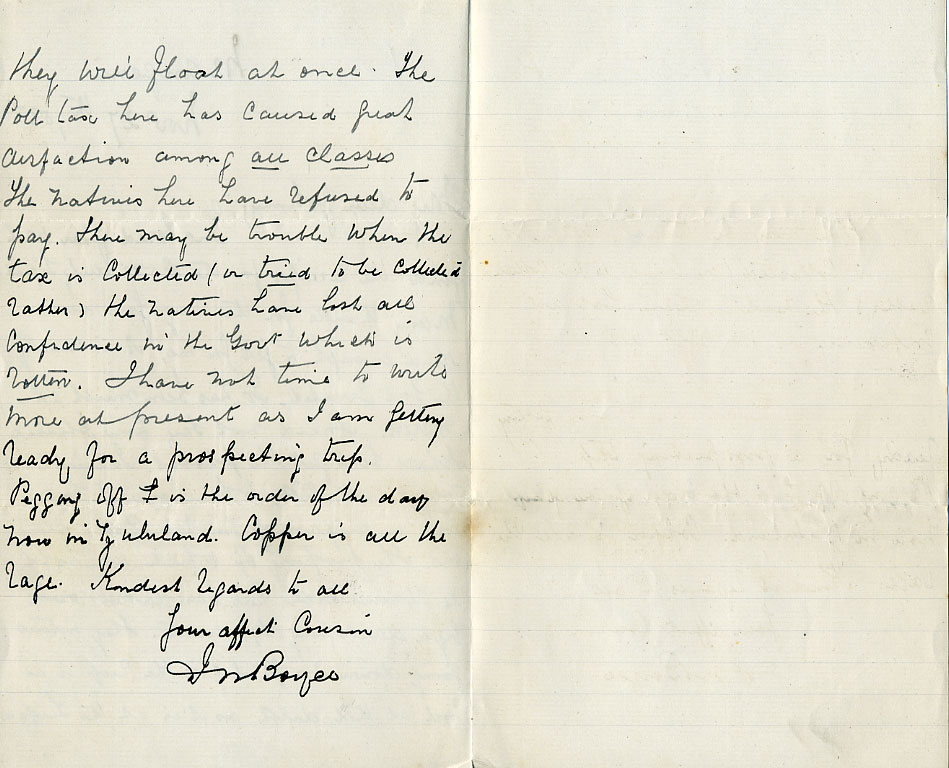 they will float at once. The
Poll tax here has caused great
disfaction among all classes
The natives here have refused to
pay. There may be trouble when the
tax is Collected (or tried to be Collected
rather) the natives have lost all
Confidence in the Govt which is
rotten. I have not time to write
more at present as I am getting
ready for a prospecting trip.
Pegging off is the order of the day
now in Zululand. Copper is all the
rage. Kindest regards to all
Your affect Cousin
Boyes